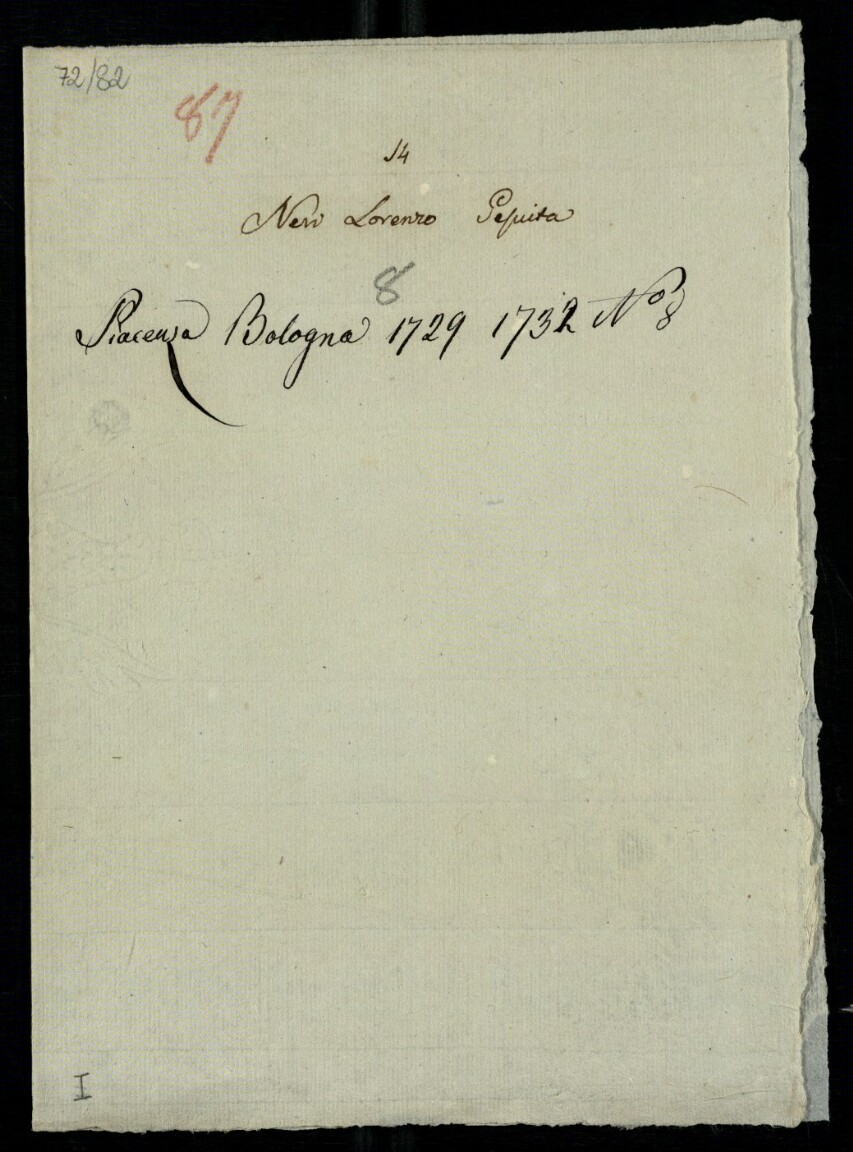 72/82
87
14
Neri Lorenzo Gesuita
8
Piacenza Bologna 1729 1732 No 8
I